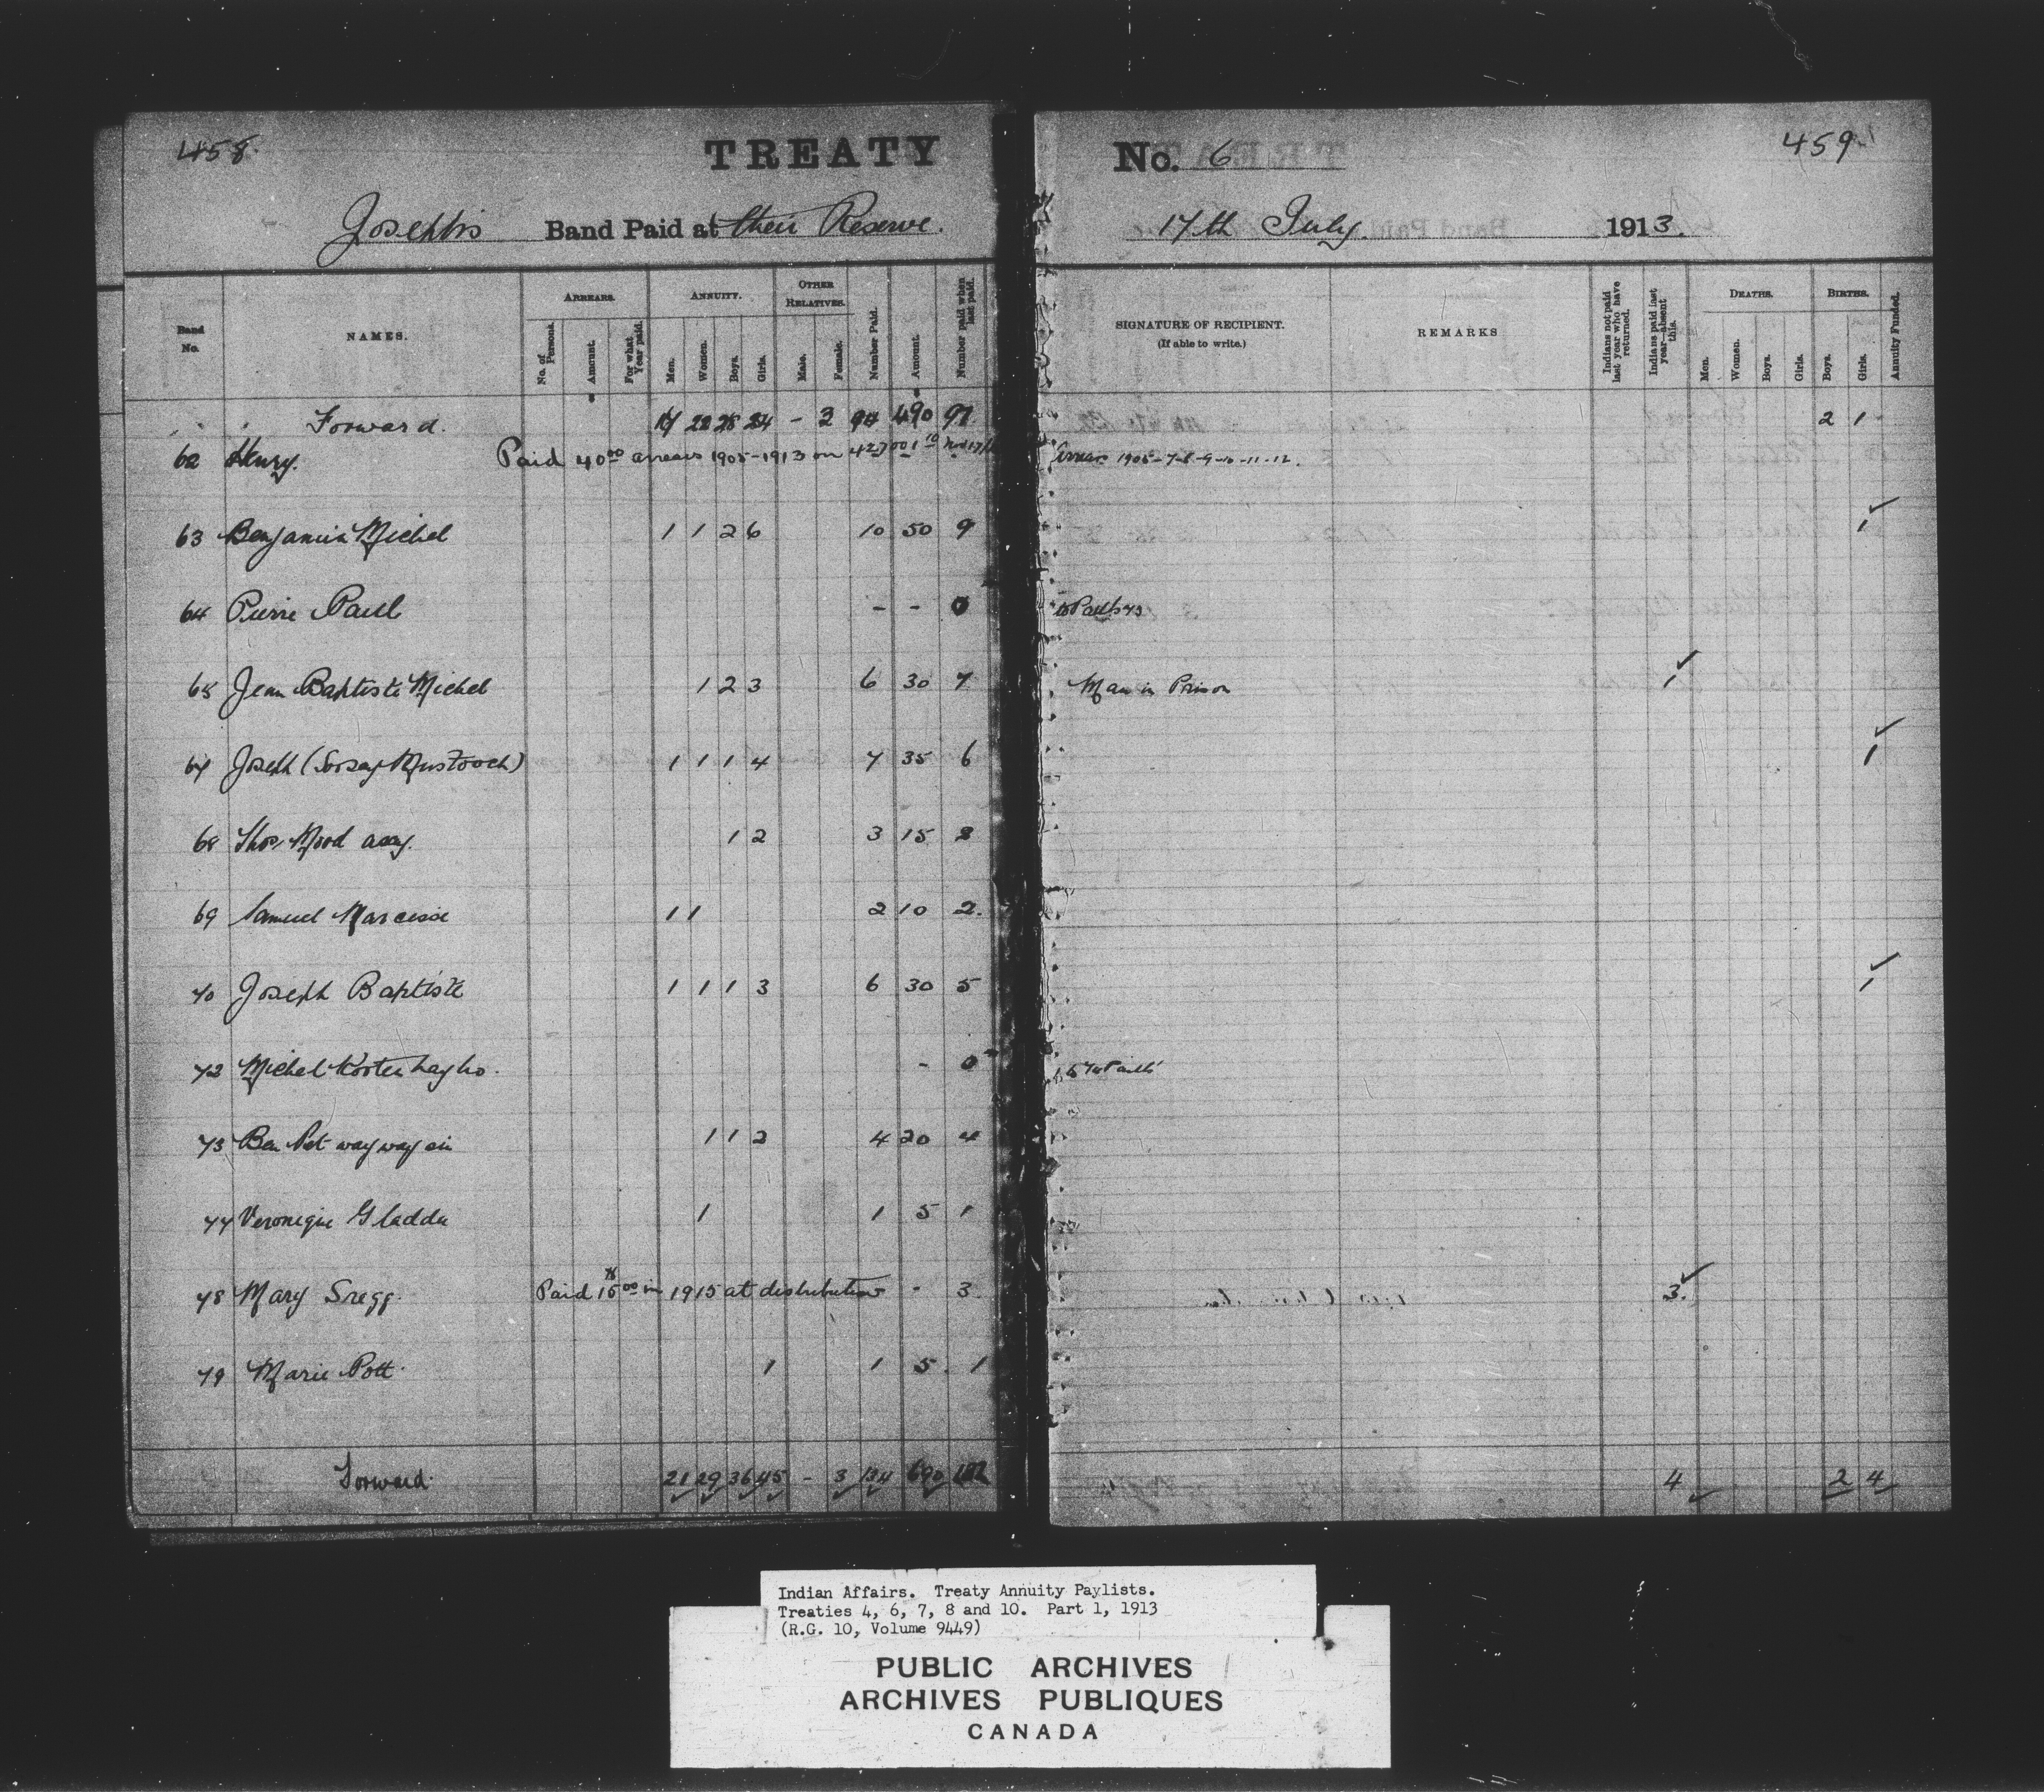 458.
TREATY
No. 6
459
Joseph's Band Paid at their Reserve.
17th July 1913.
Band No.
NAMES.
ARREARS.
No. of Persons.
Amount.
For what Year paid.
ANNUITY.
Men.
Women.
Boys.
Girls.
OTHER RELATIVES.
Male.
Female.
Number Paid.
Amount.
Number paid when last paid.
SIGNATURE OF RECIPIENT.
(If able to write.)
REMARKS
Indians not paid last year who have returned.
Indians paid last year—absent this.
DEATHS.
Men.
Women.
Boys.
Girls.
BIRTHS.
Boys.
Girls.
Annuity Funded.
Forward. 22 - 3 490 97 2 1
62 Henry. Paid 40 00 arrears 1905-1913 on
63 Benjamin Michel 1 1 2 6 10 50 9 1
64 Pierre Paul - - 0
65 Jean Baptiste Michel 1 2 3 6 30 7 Man in Prison 1
67 Joseph 1 1 1 4 7 35 6 1
68 Thos. 1 2 3 15 3
69 Samuel Narcisse 1 1 2 10 2.
70 Joseph Baptiste 1 1 1 3 6 30 5 1
72 Michel - 0
73 Ben 1 1 2 4 20 4
77 Veronique Gladdu 1 1 5 1
78 Mary Gregg. Paid 15 00 in 1915 at distribution - 3. 3.
79 Marie Pott 1 1 5 1
Forward 21 29 36 45 - 3 134 690 4 2 4
Indian Affairs. Treaty Annuity Paylists.
Treaties 4, 6, 7, 8 and 10. Part 1, 1913
(R.G. 10, Volume 9449)
PUBLIC ARCHIVES
ARCHIVES PUBLIQUES
CANADA